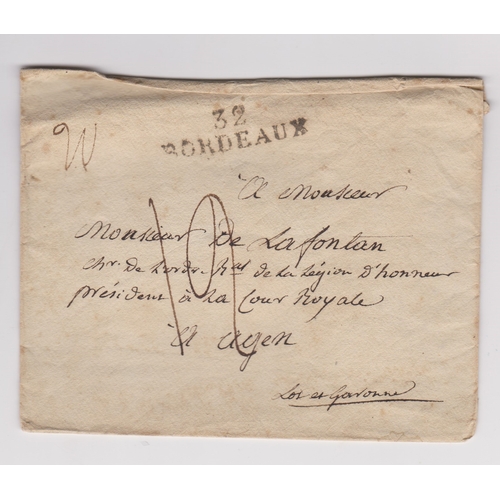 32
BORDEAUX
A Monsieur
Monsieur De Lafontan
chr. De L'ordre Ral de La Légion D'honneur
président à La Cour Royale
A agen
Lot et Garonne